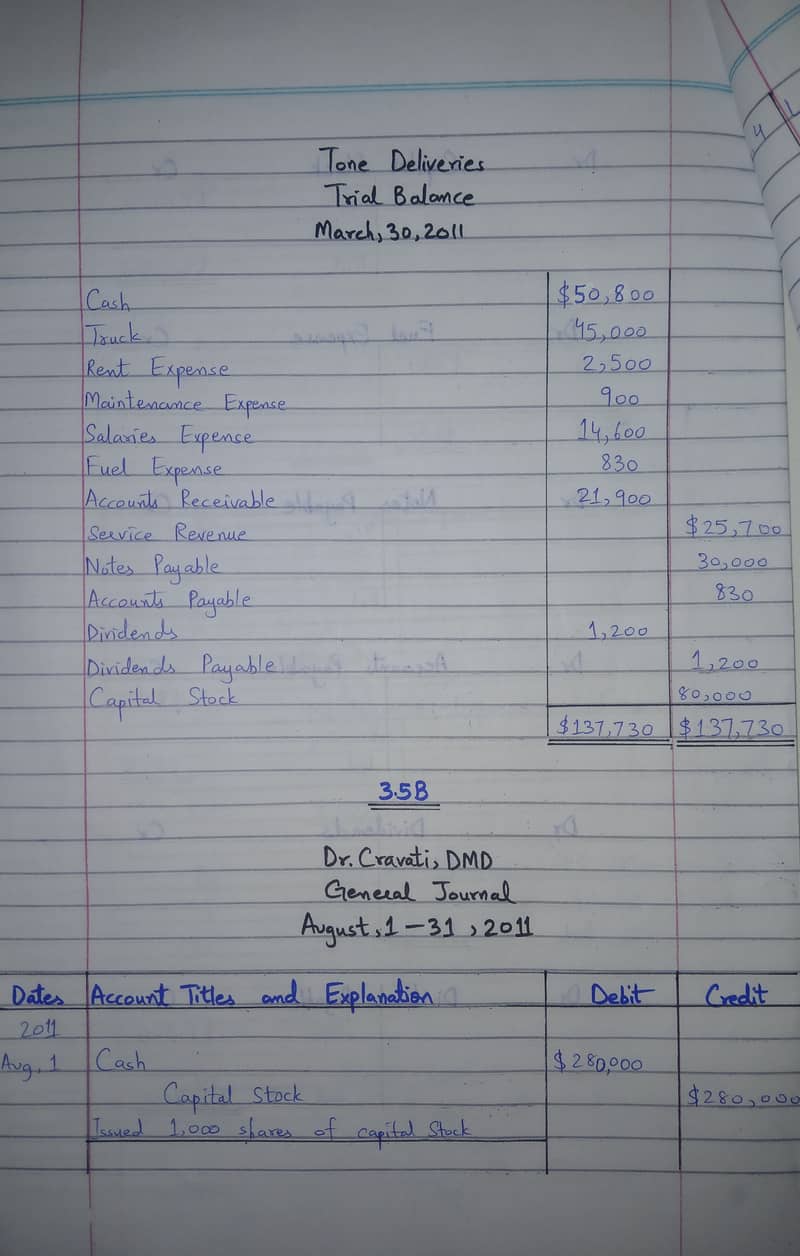 Tone Deliveries
Trial Balance
March, 30, 2011
Cash $50,800
Truck 45,000
Rent Expense 2,500
Maintenance Expense 900
Salaries Expense 14,600
Fuel Expense 830
Accounts Receivable 21,900
Service Revenue $25,700
Notes Payable 30,000
Accounts Payable 830
Dividends 1,200
Dividends Payable 1,200
Capital Stock 80,000
$137,730 $137,730
3.5B
Dr. Cravati, DMD
General Journal
August, 1 – 31, 2011
Dates Account Titles and Explanation Debit Credit
2011
Aug, 1 Cash $280,000
Capital Stock $280,000
Issued 1,000 shares of capital Stock